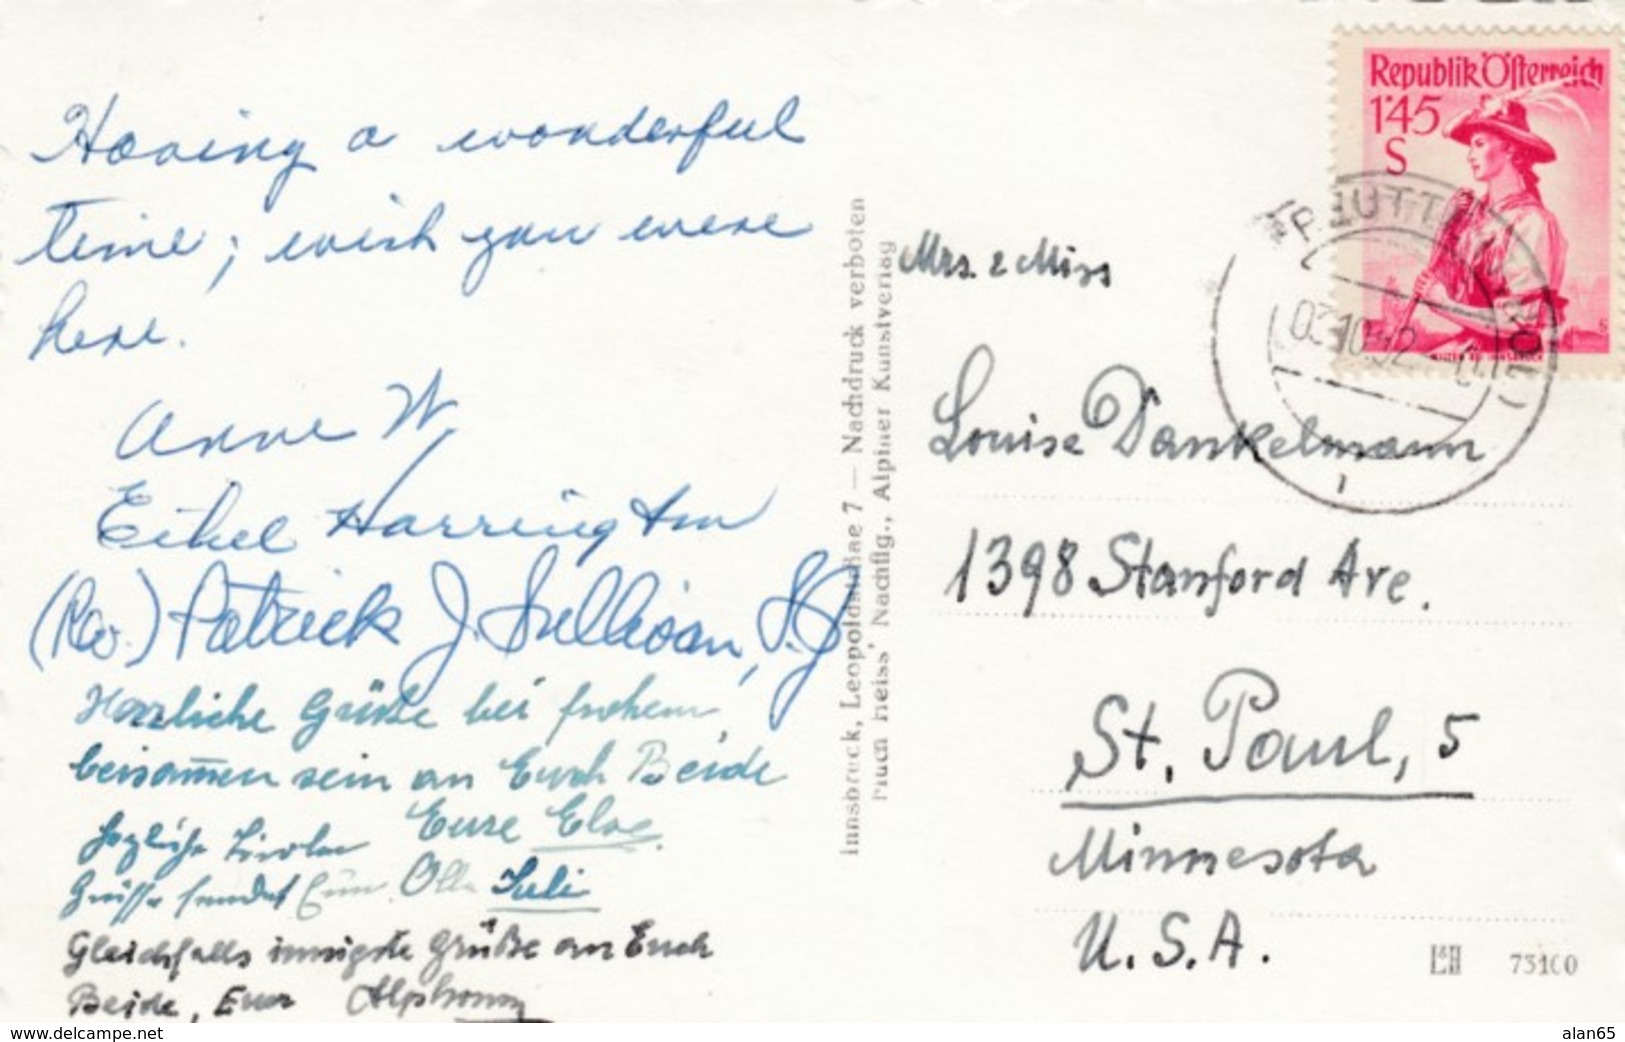 Having a wonderful
time; wish you were
here.
Anne W.
Ethel Harrington
(Rev.) Patrick J. Sullivan, S.J.
Herzliche Grüße bei frohem
beisammen sein an Euch Beide
Eure
herzliche Tiroler
Grüsse sendet Olla Juli
Gleichfalls innigste Grüße an Euch
Beide, Euer Alphons
Innsbruck, Leopoldstraße 7 — Nachdruck verboten
Much Heiss' Nachflg., Alpiner Kunstverlag
Republik Österreich
1'45
S
REUTTE (TIROL)
03.10.52
Mrs. & Miss
Louise Dankelmann
1398 Stanford Ave.
St. Paul, 5
Minnesota
U.S.A.
73100
www.delcampe.net
alan65